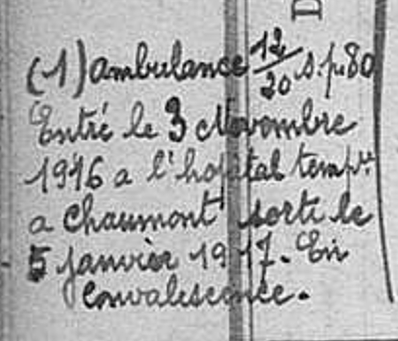 (1) ambulance 12/20 s.p. 80
Entré le 3 Novembre
1916 a l'hopital temp.re
a Chaumont sorti le
5 janvier 1917. En
Convalescence.
D